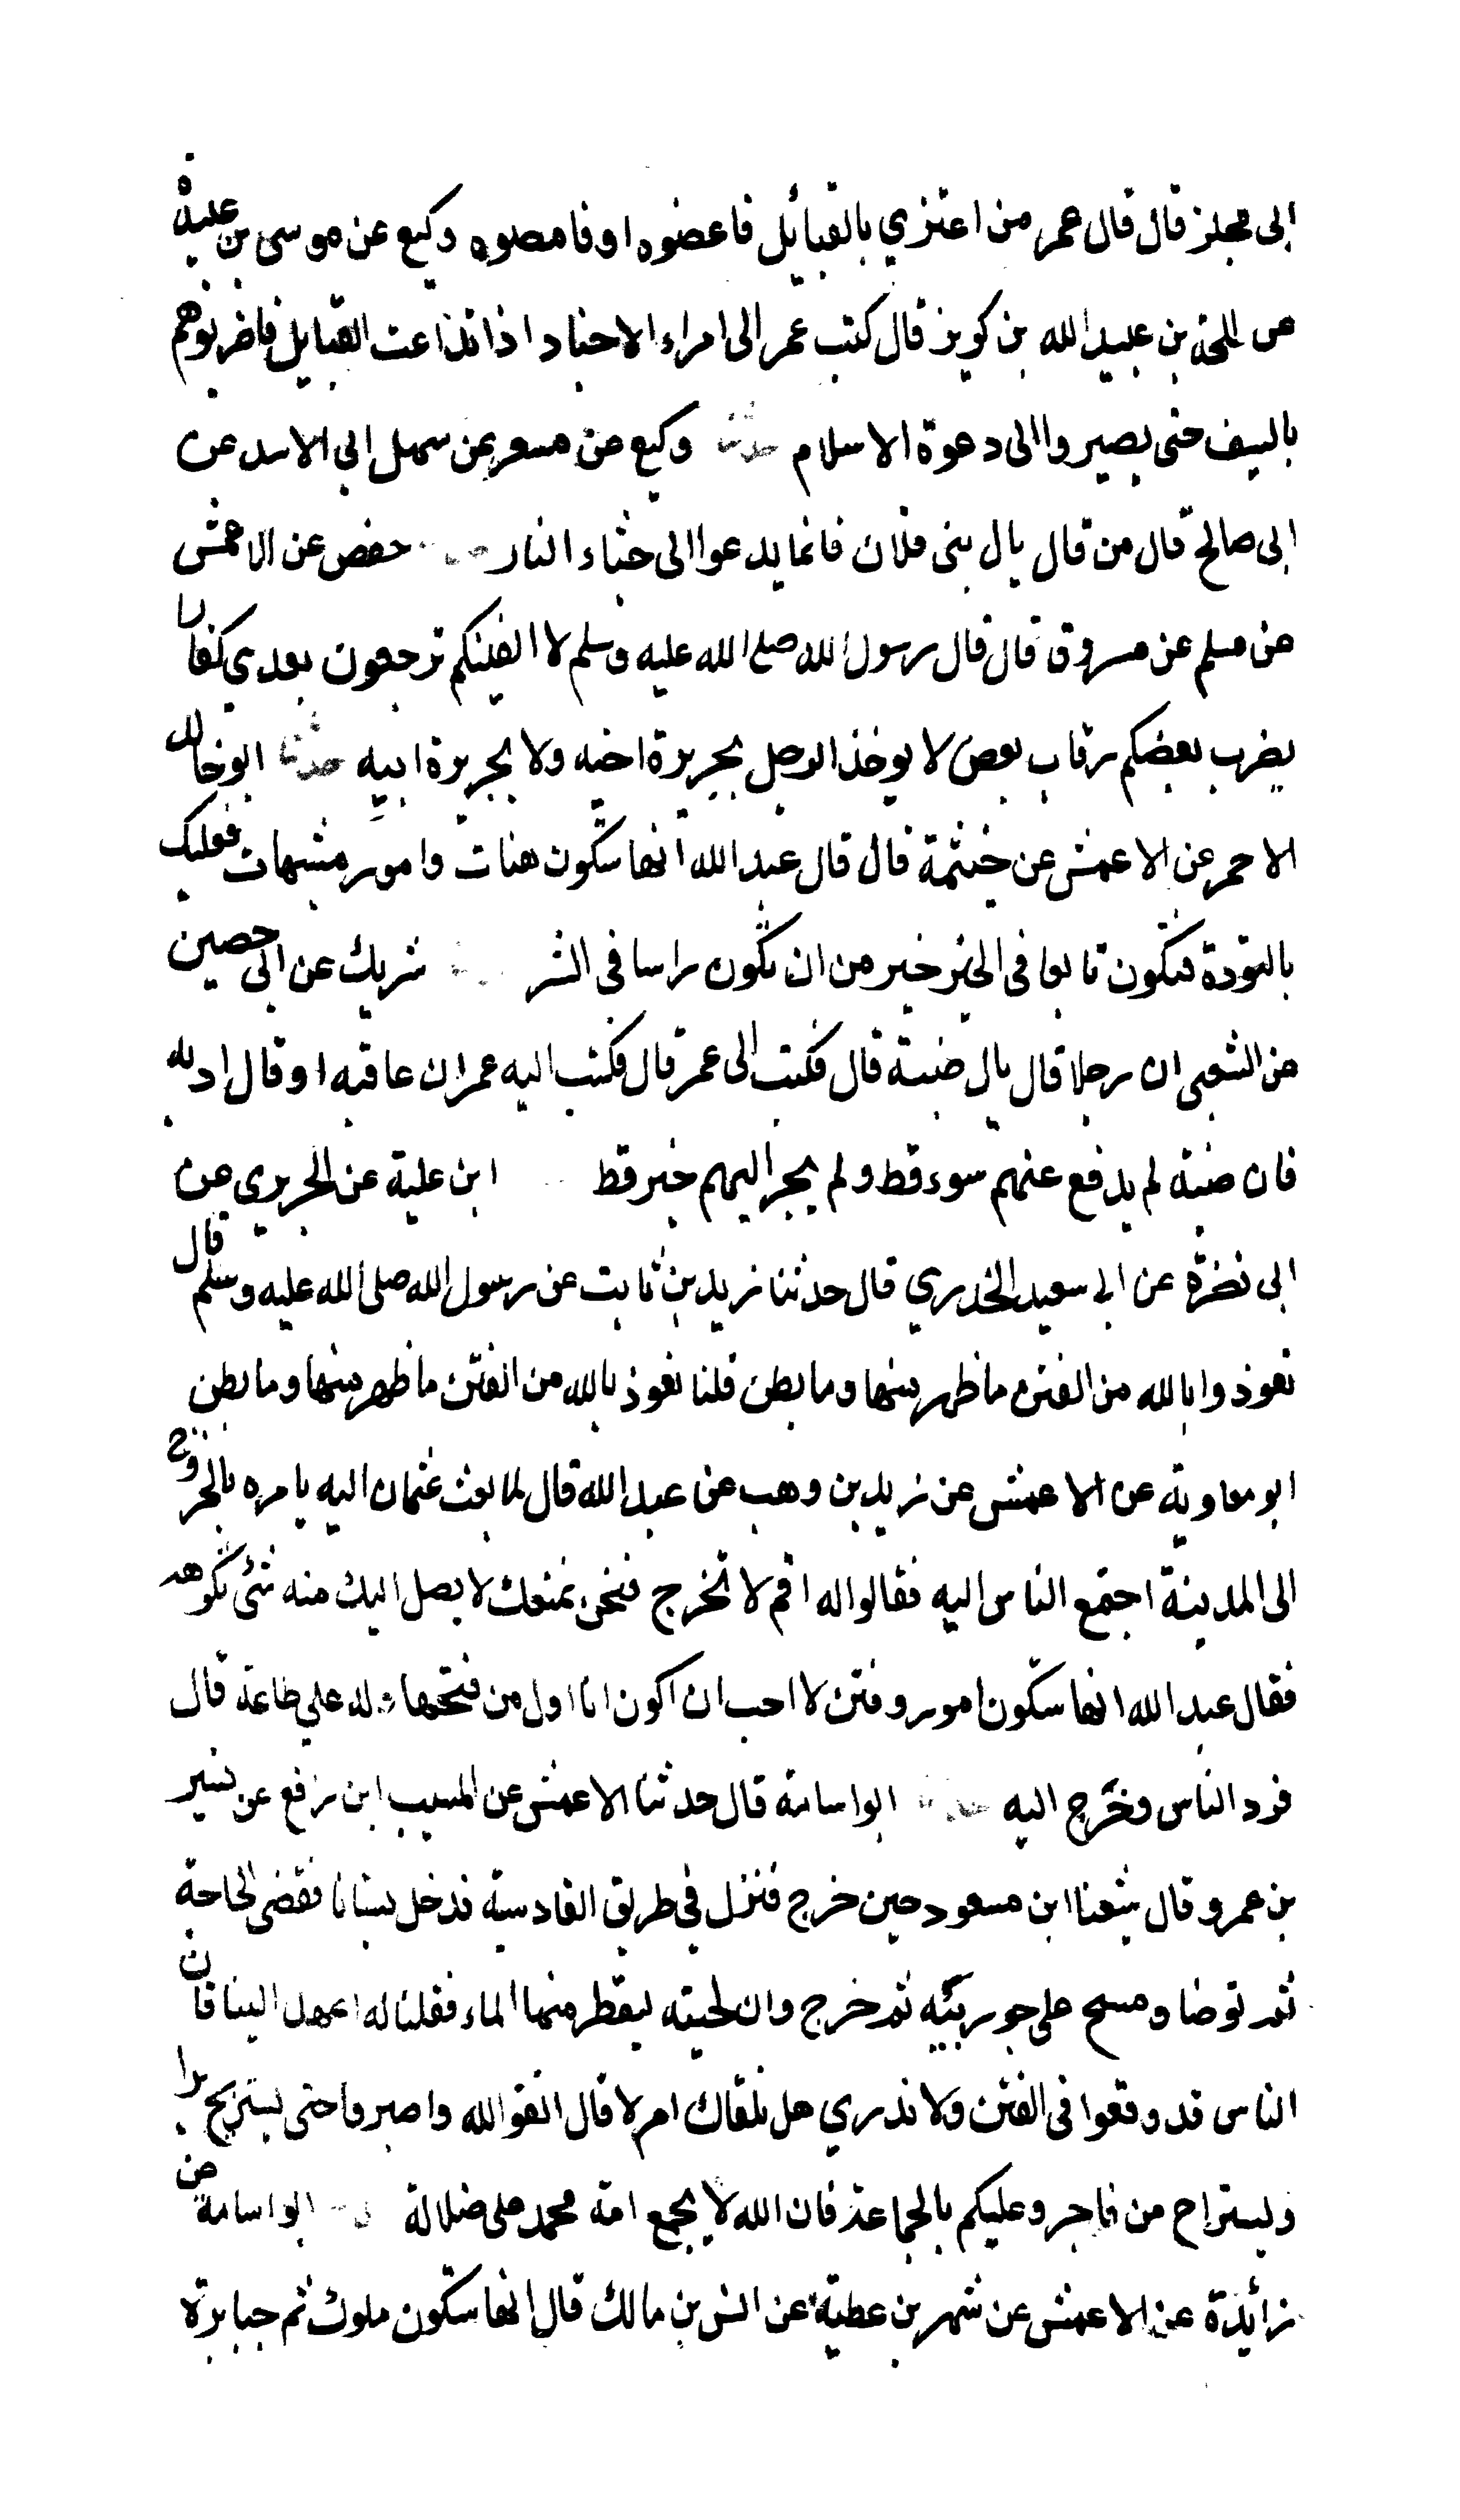 ابى مجلز قال قال عمر من اعتزي بالقبائل فاعضوه او فامصوه وكيع عن موسى بن عبيدة
عن طلحة بن عبيد الله بن كويز قال كتب عمر الى امراء الاجناد اذا تداعت القبايل فاضربوهم
بالسيف حتى يصيروا الى دعوة الاسلام حدثنا وكيع عن مسعر عن سهل ابى الاسد عن
ابى صالح قال من قال يال بنى فلان فانما يدعوا الى جثاء النار حفص عن الاعمش
عن مسلم عن مسروق قال قال رسول الله صلى الله عليه وسلم لا الفينكم ترجعون بعدي كفارا
يضرب بعضكم رقاب بعض لا يوخذ الرجل بجريرة اخيه ولا بجريرة ابيه حدثنا ابو خالد
الاحمر عن الاعمش عن خيثمة قال قال عبد الله انها ستكون هنات وامور مشبهات فعليك
بالتودة فتكون تابعا فى الخير خير من ان تكون راسا فى الشر شريك عن ابى حصين
عن الشعبى ان رجلا قال يال ضبة قال فكتب الى عمر قال فكتب اليه عمر ان عاقبه او قال ادبه
فان ضبة لم يدفع عنهم سوء قط ولم يجر اليهم خير قط ابن علية عن الجريري عن
ابى نضرة عن ابى سعيد الخدري قال حدثنا زيد بن ثابت عن رسول الله صلى الله عليه وسلم قال
تعوذوا بالله من الفتن ما ظهر منها وما بطن قلنا نعوذ بالله من الفتن ما ظهر منها وما بطن
ابو معاوية عن الاعمش عن زيد بن وهب عن عبد الله قال لما بعث عثمان اليه يامره بالخروج
الى المدينة اجتمع الناس اليه فقالوا له اقم لا تخرج فنحن نمنعك لا يصل اليك منه شئ تكرهه
فقال عبد الله انها ستكون امور وفتن لا احب ان اكون انا اول من فتحها وله علي طاعة قال
فرد الناس وخرج اليه حدثنا ابو اسامة قال حدثنا الاعمش عن المسيب ابن رفع عن يسير
بن عمرو قال شيعنا ابن مسعود حين خرج فنزل في طريق القادسية فدخل بستانا فقضى الحاجة
ثم توضا ومسح على جوربيه ثم خرج وان لحيته ليقطر منها الماء فقلنا له اعهد الينا فان
الناس قد وقعوا فى الفتن ولا ندري هل نلقاك ام لا قال اتقوا الله واصبروا حتى يستريح برا
ويستراح من فاجر وعليكم بالجماعة فان الله لا يجمع امة محمد على ضلالة ابو اسامة عن
زائدة عن الاعمش عن شمر بن عطية عن انس بن مالك قال انها ستكون ملوك ثم جبابرة